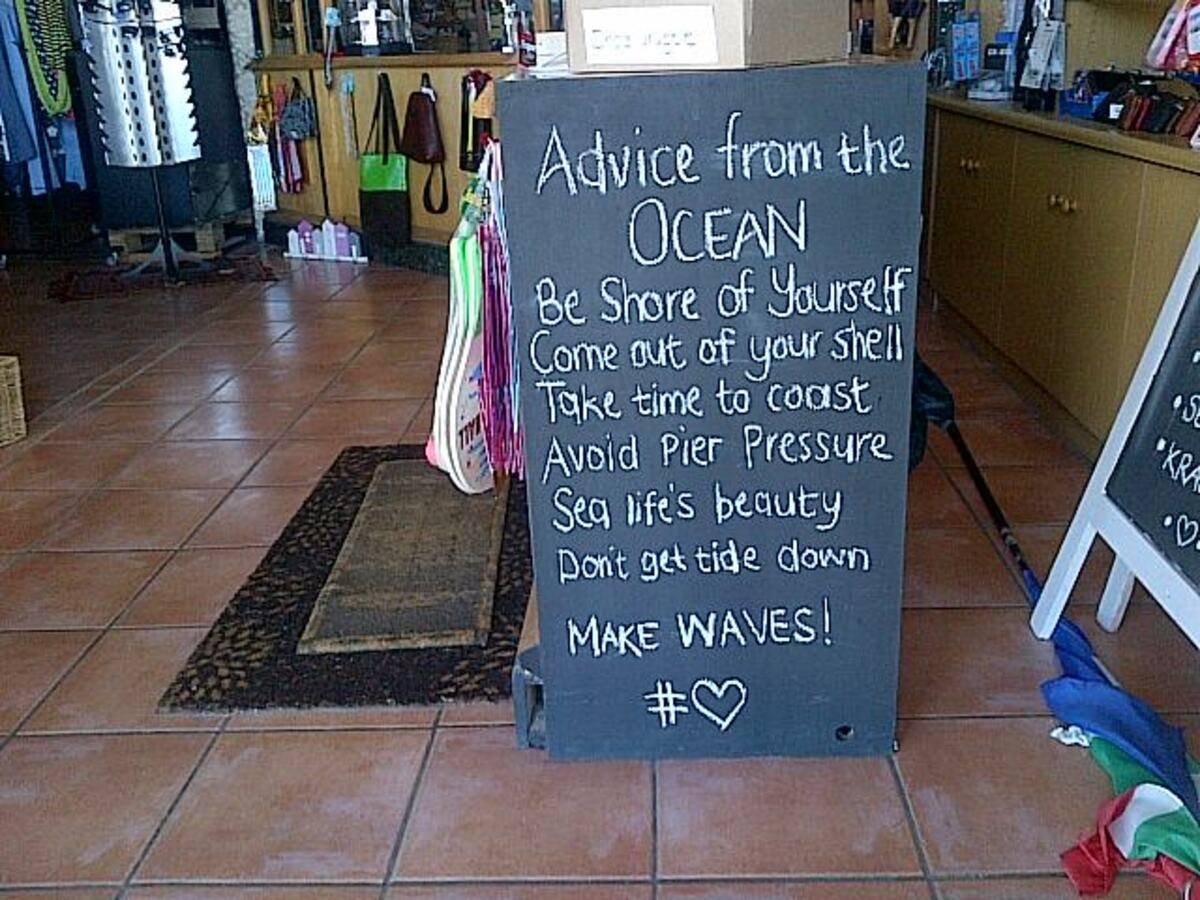 Advice from the
OCEAN
Be Shore of Yourself
Come out of your shell
Take time to coast
Avoid Pier Pressure
Sea life's beauty
Don't get tide down
MAKE WAVES!
#♡